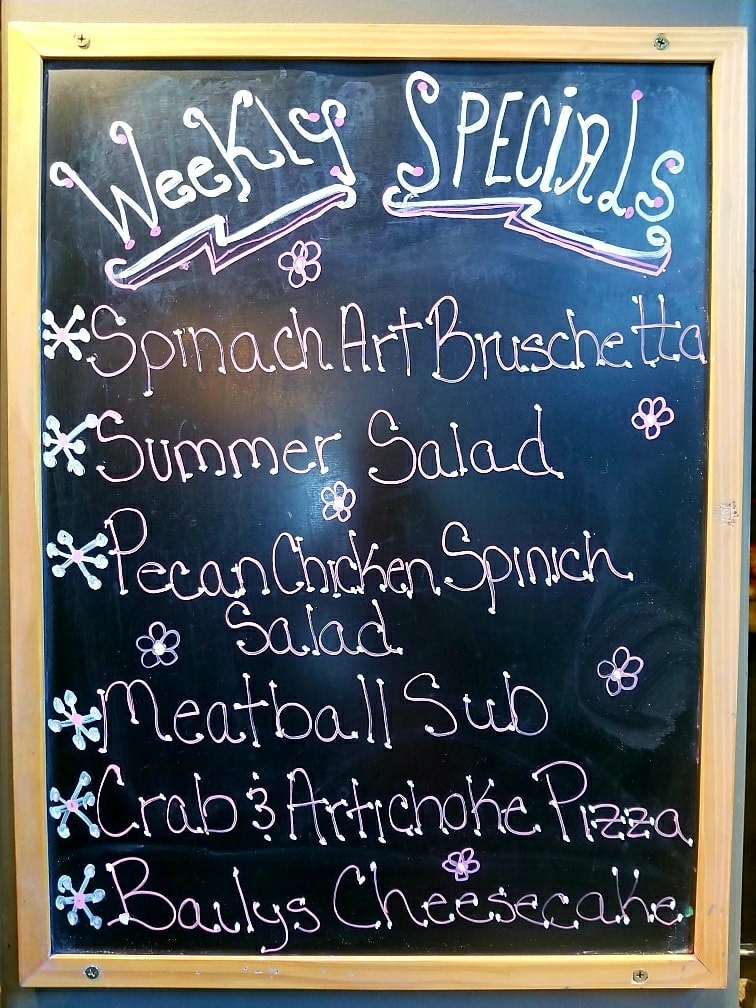 Weekly SPECIALS
Spinach Art Bruschetta
Summer Salad
Pecan Chicken Spinich
Salad
Meatball Sub
Crab & Artichoke Pizza
Bailys Cheesecake